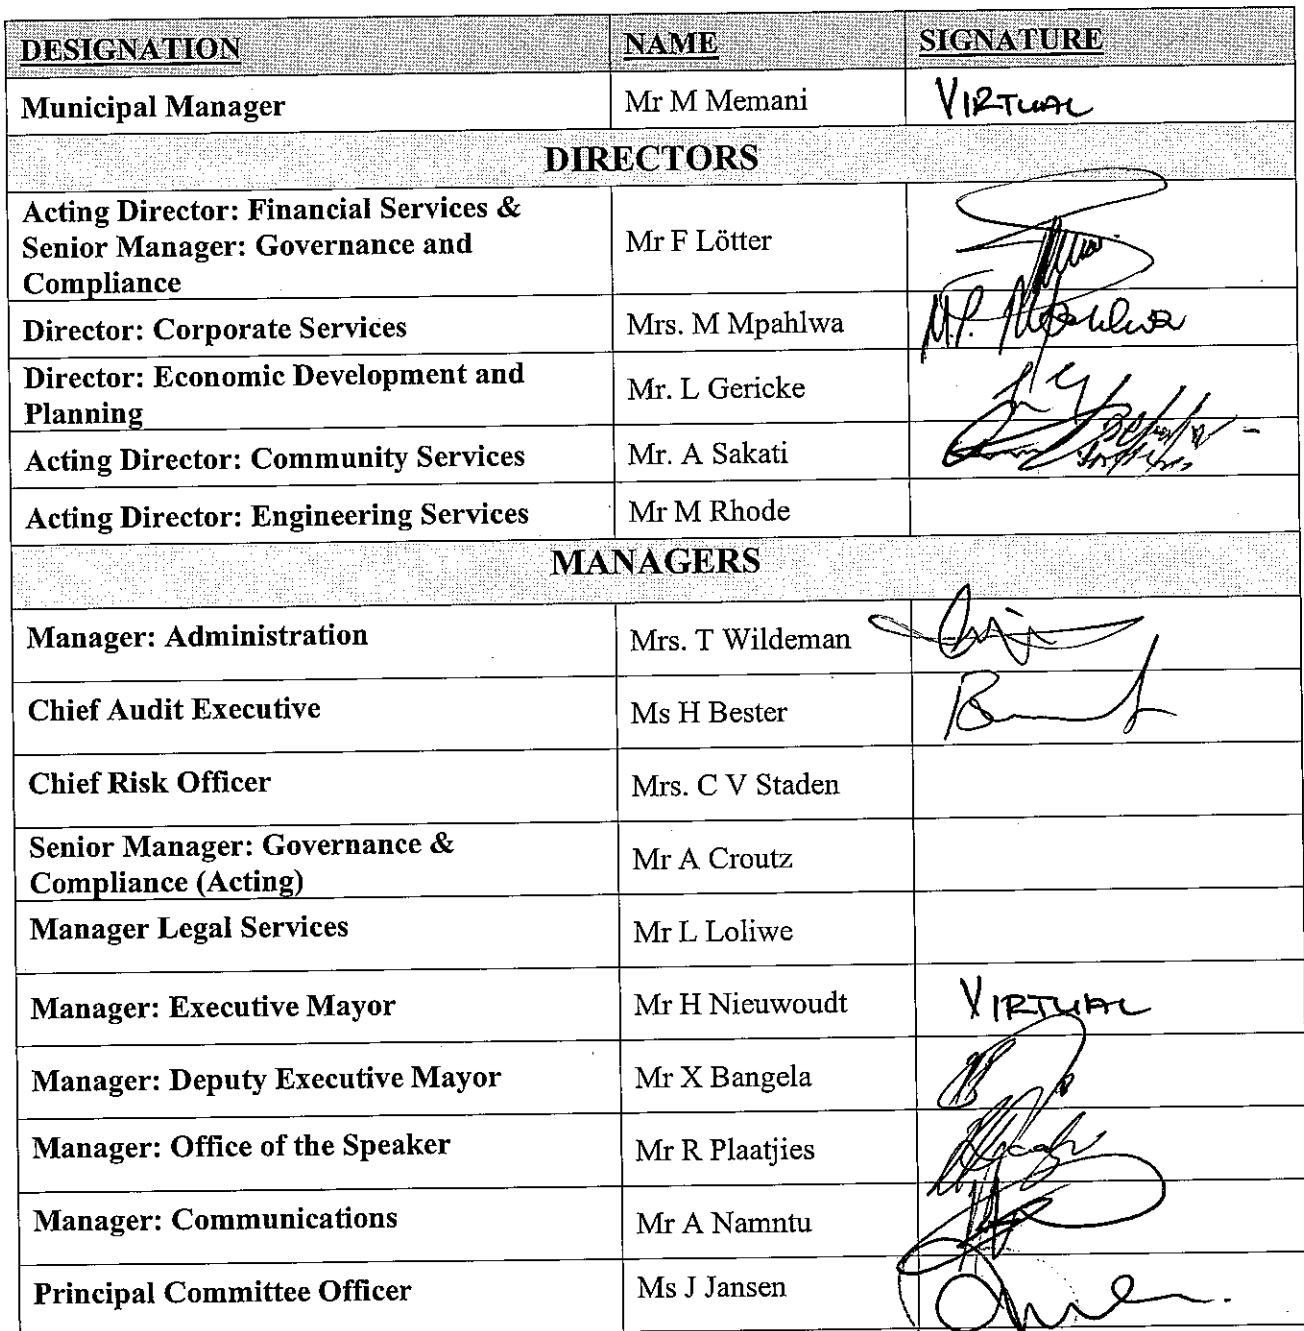 DESIGNATION NAME SIGNATURE
Municipal Manager Mr M Memani VIRTUAL
DIRECTORS
Acting Director: Financial Services &
Senior Manager: Governance and
Compliance
Mr F Lötter
Director: Corporate Services Mrs. M Mpahlwa M.P. Mpahlwa
Director: Economic Development and
Planning
Mr. L Gericke
Acting Director: Community Services Mr. A Sakati
Acting Director: Engineering Services Mr M Rhode
MANAGERS
Manager: Administration Mrs. T Wildeman
Chief Audit Executive Ms H Bester
Chief Risk Officer Mrs. C V Staden
Senior Manager: Governance &
Compliance (Acting)
Mr A Croutz
Manager Legal Services Mr L Loliwe
Manager: Executive Mayor Mr H Nieuwoudt VIRTUAL
Manager: Deputy Executive Mayor Mr X Bangela
Manager: Office of the Speaker Mr R Plaatjies
Manager: Communications Mr A Namntu
Principal Committee Officer Ms J Jansen